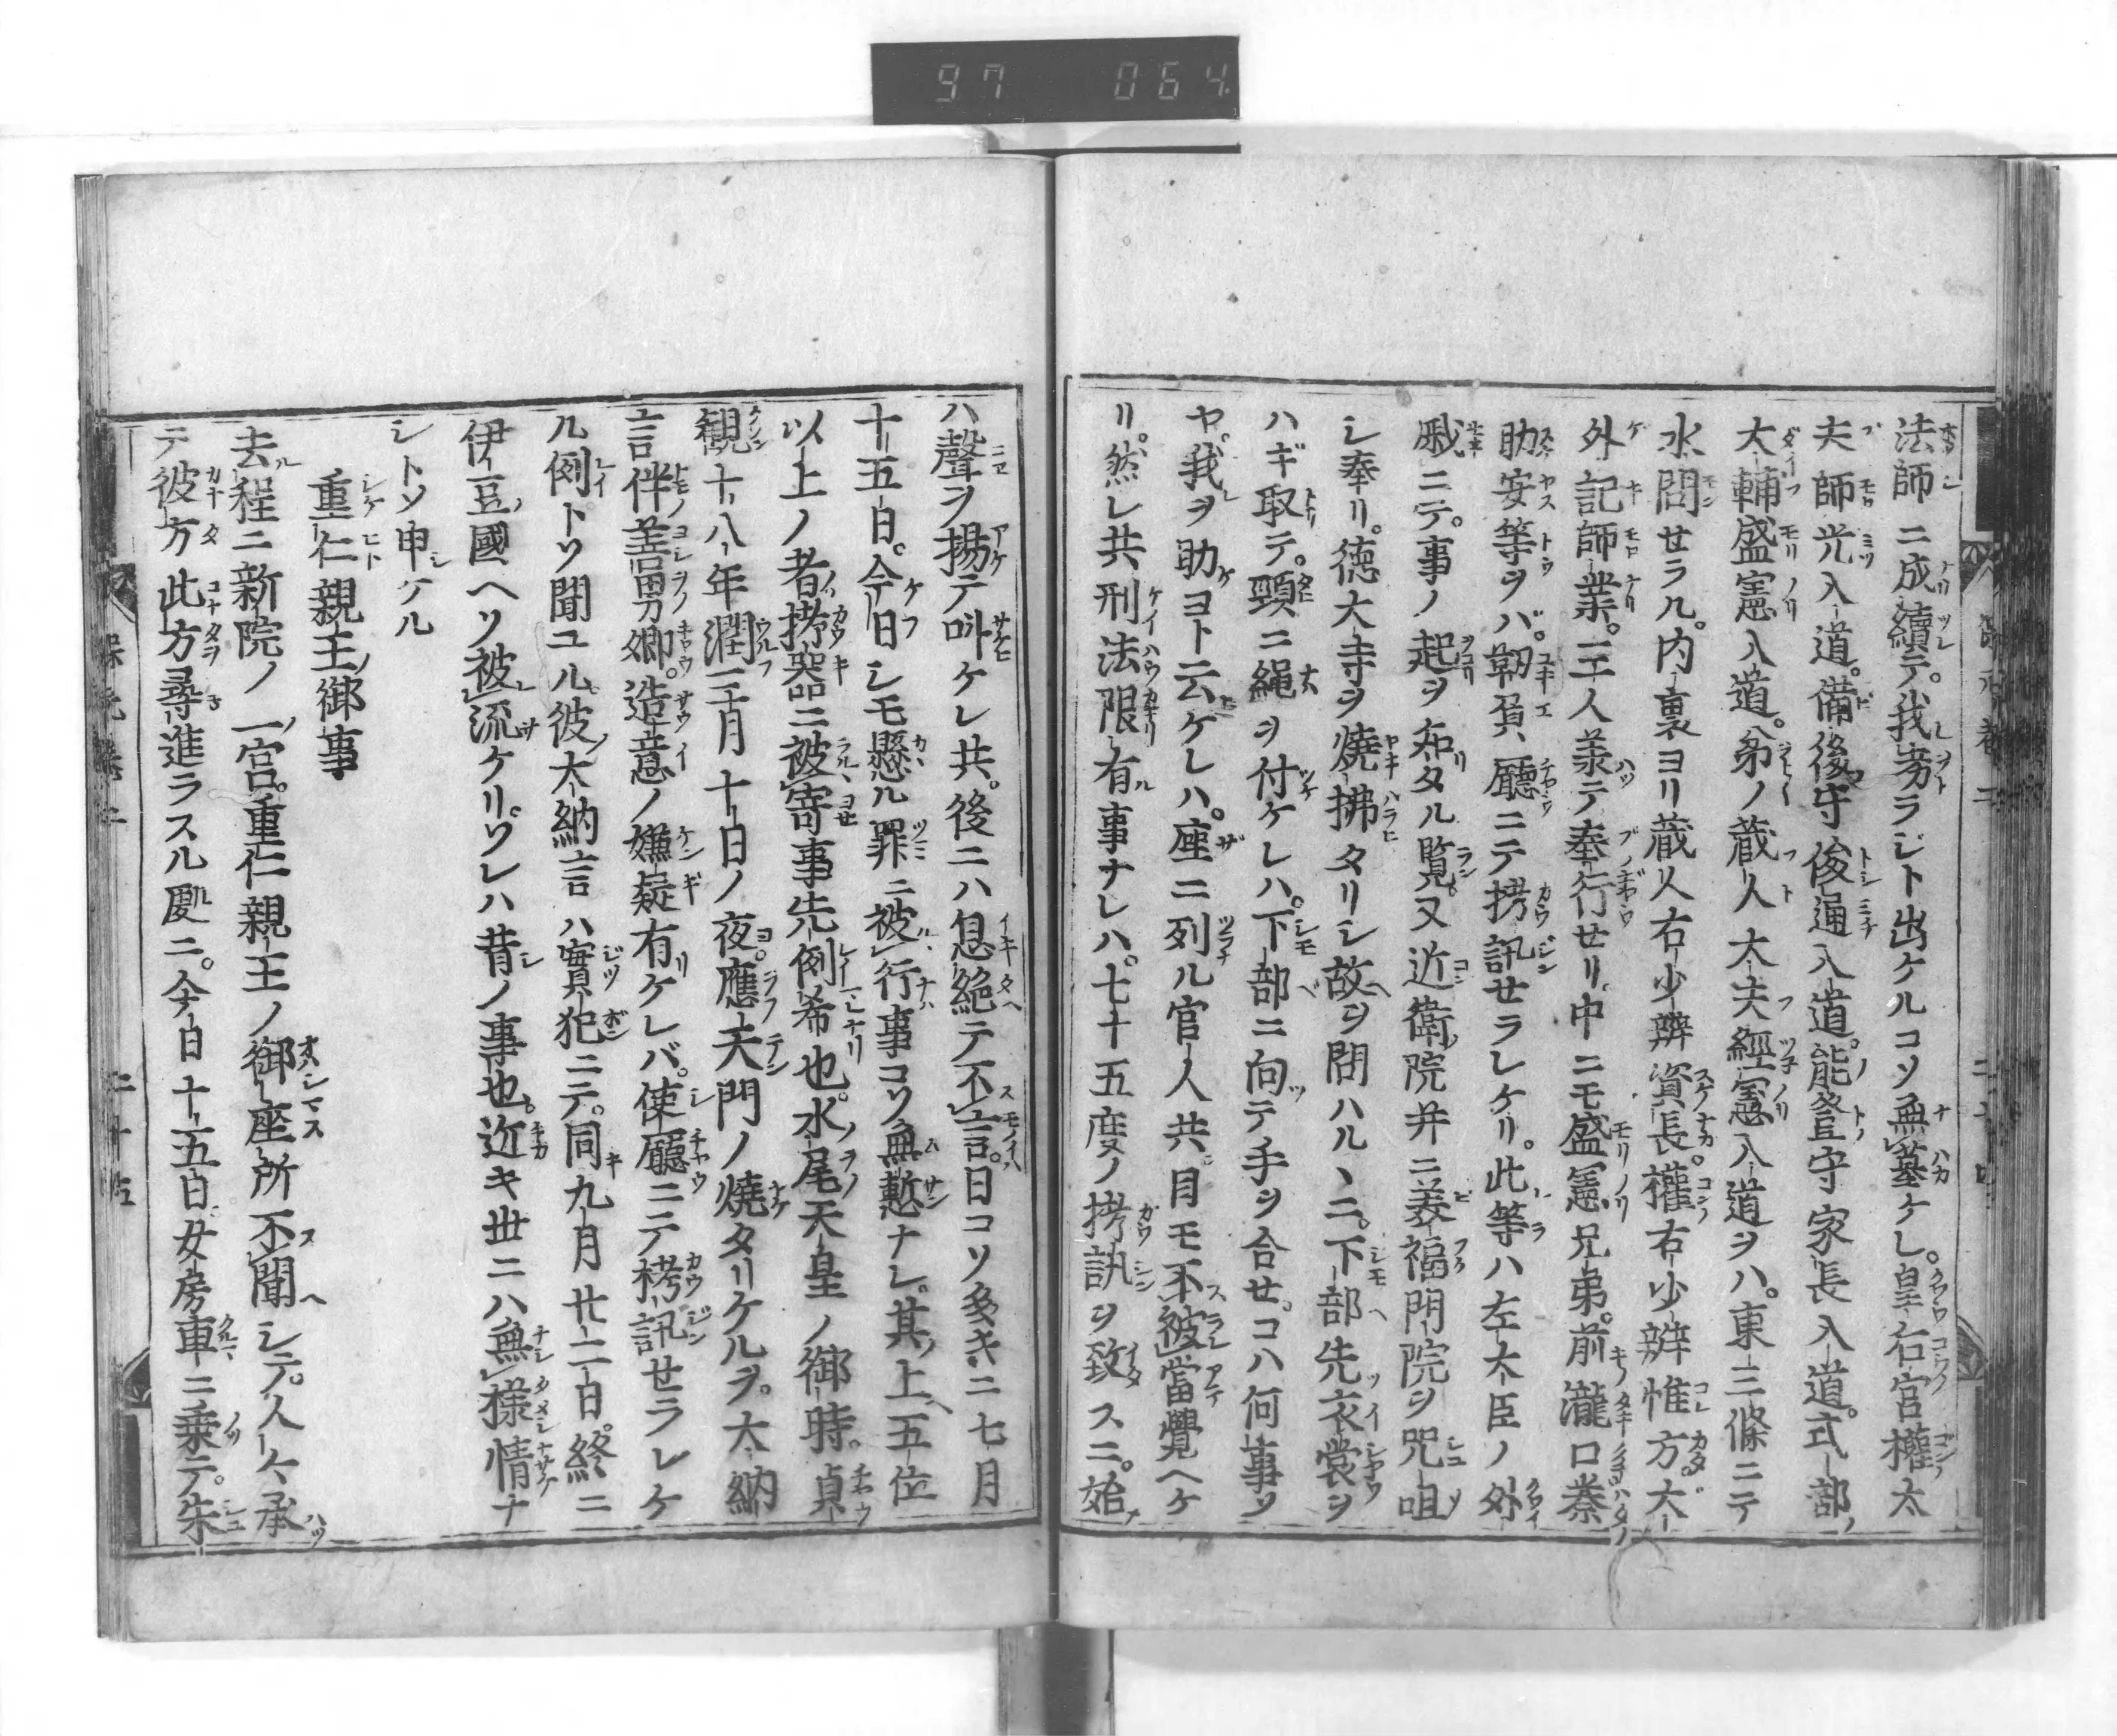 97 064
法師ニ成續テ。我劣ラジト出ケルコソ無墓ケレ。皇后宮權太
夫師光入道。備後守俊通入道。能登守家長入道。式部
大輔盛憲入道。弟ノ蔵人太夫經憲入道ヲハ。東三條ニテ
水問セラル。内裏ヨリ蔵人右少辨資長。權右少辨惟方。大
外記師業。三人羕テ奉行セリ。中ニモ盛憲兄弟。前瀧口秦
助安等ヲバ。靭負廳ニテ拷訊セラレケリ。此等ハ左大臣ノ外
戚ニテ。事ノ起ヲ知タル覧。又近衛院并ニ美福門院ヲ咒咀
シ奉リ。徳大寺ヲ燒拂タリシ故ヲ問ハルヽニ。下部先衣裳ヲ
ハギ取テ。頸ニ繩ヲ付ケレハ。下部ニ向テ手ヲ合セ。コハ何事ソ
ヤ。我ヲ助ケヨト云ケレハ。座ニ列ル官人共。目モ不被當覺ヘケ
リ。然レ共刑法限有事ナレハ。七十五度ノ拷訊ヲ致スニ。始
ハ聲ヲ揚テ叫ケレ共。後ニハ息絶テ不言。日コソ多キニ七月
十五日。今日シモ懸ル罪ニ被行事コソ無慙ナレ。其上五位
以上ノ者拷器ニ被寄事先例希也。水尾天皇ノ御時。貞
観十八年潤三月十日ノ夜。應天門ノ燒タリケルヲ。大納
言伴善男卿。造意ノ嫌疑有ケレバ。使廳ニテ栲訊セラレケ
ル例トソ聞ユル。彼大納言ハ實犯ニテ。同九月廿二日。終ニ
伊豆國ヘソ被流ケリ。ソレハ昔ノ事也。近キ世ニハ無様情ナ
シトソ申ケル
重仁親王ノ御事
去程ニ新院ノ一宮。重仁親王ノ御座所不聞シテ。人々承
テ彼方此方尋進ラスル處ニ。今日十五日。女房車ニ乗テ。朱